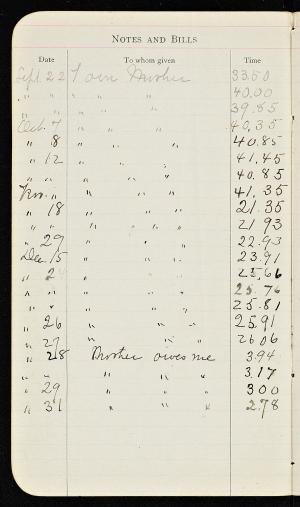 NOTES AND BILLS
Date To whom given Time
Sept 22 I owe Mother 33.50
" " " " 40.00
" " " " 39.85
Oct. 7 " " 40.35
" 8 " " 40.85
" 12 " " 41.45
" " " " 40.85
Nov. " " " 41.35
" 18 " " 21.35
" " " " 21 93
" 29 " " 22.93
Dec. 15 " " 23.91
" " " 25.66
" " " " 25.76
" " " " 25.81
" 26 " " 25.91
" 27 " " 26 06
" 28 Mother owes me 3.94
" " " " " 3.17
" 29 " " " 3 00
" 31 " " " 2.78